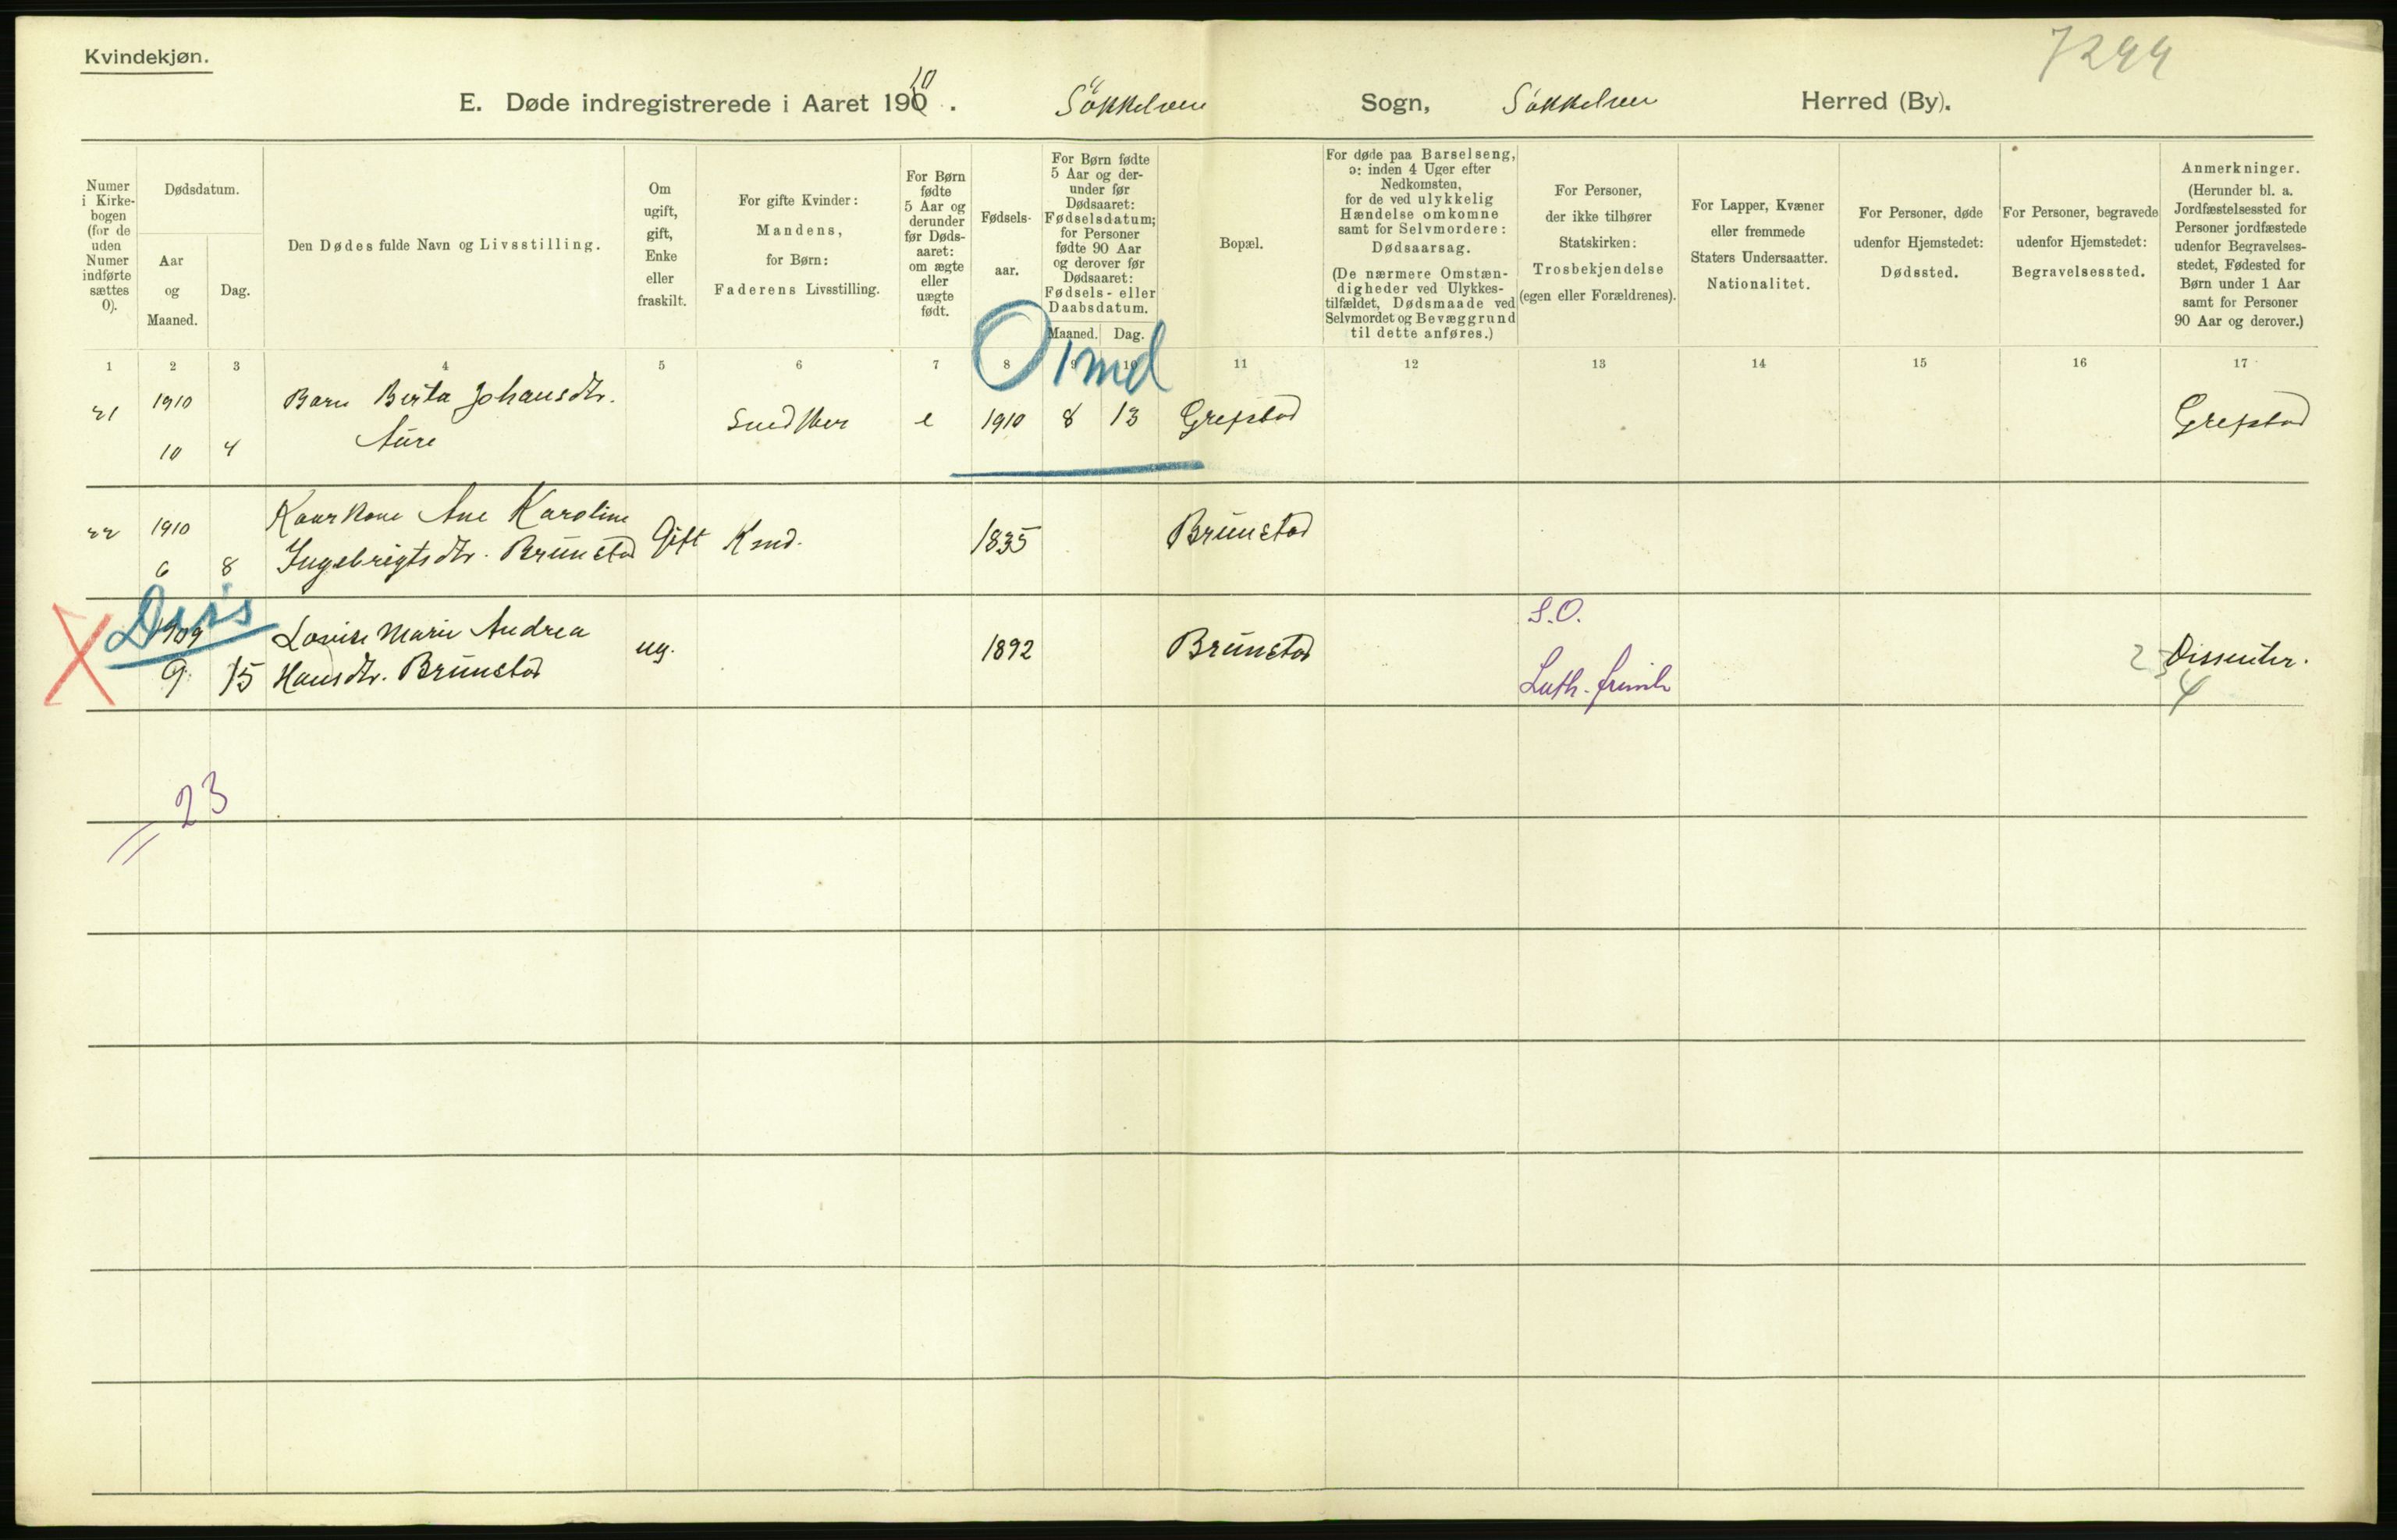 Kvindekjøn.
7244
E. Døde indregistrerede i Aaret 1910. Søkkelven Sogn, Søkkelven Herred (By).
Numer i Kirkebogen (for de uden Numer indførte sættes 0).
Dødsdatum.
Aar og Maaned.
Dag.
Den Dødes fulde Navn og Livsstilling.
Om ugift, gift, Enke eller fraskilt.
For gifte Kvinder: Mandens, for Børn: Faderens Livsstilling.
For Børn fødte 5 Aar og derunder før Dødsaaret: om ægte eller uægte født.
Fødselsaar.
For Børn fødte 5 Aar og derunder før Dødsaaret: Fødselsdatum; for Personer fødte 90 Aar og derover før Dødsaaret: Fødsels- eller Daabsdatum.
Maaned. Dag.
Bopæl.
For døde paa Barselseng, ɔ: inden 4 Uger efter Nedkomsten, for de ved ulykkelig Hændelse omkomne samt for Selvmordere: Dødsaarsag.
(De nærmere Omstændigheder ved Ulykkestilfældet, Dødsmaade ved Selvmordet og Bevæggrund til dette anføres.)
For Personer, der ikke tilhører Statskirken: Trosbekjendelse (egen eller Forældrenes).
For Lapper, Kvæner eller fremmede Staters Undersaatter. Nationalitet.
For Personer, døde udenfor Hjemstedet: Dødssted.
For Personer, begravede udenfor Hjemstedet: Begravelsessted.
Anmerkninger. (Herunder bl. a. Jordfæstelsessted for Personer jordfæstede udenfor Begravelsesstedet, Fødested for Børn under 1 Aar samt for Personer 90 Aar og derover.)
1 2 3 4 5 6 7 8 9 10 11 12 13 14 15 16 17
0 1 md
21 1910 Barn Berta Johansdtr.
10 4 Aure Snedker e 1910 8 13 Grepstad Grepstad
22 1910 Kaarkone Ane Karoline
6 8 Ingebrigtsdtr. Brunstad Gift Kmd. 1835 Brunstad
Diss
1909 Lovise Marie Andrea
9 15 Hansdtr. Brunstad ug. 1892 Brunstad S.O.
Luth. frimh Dissenter.
4
23